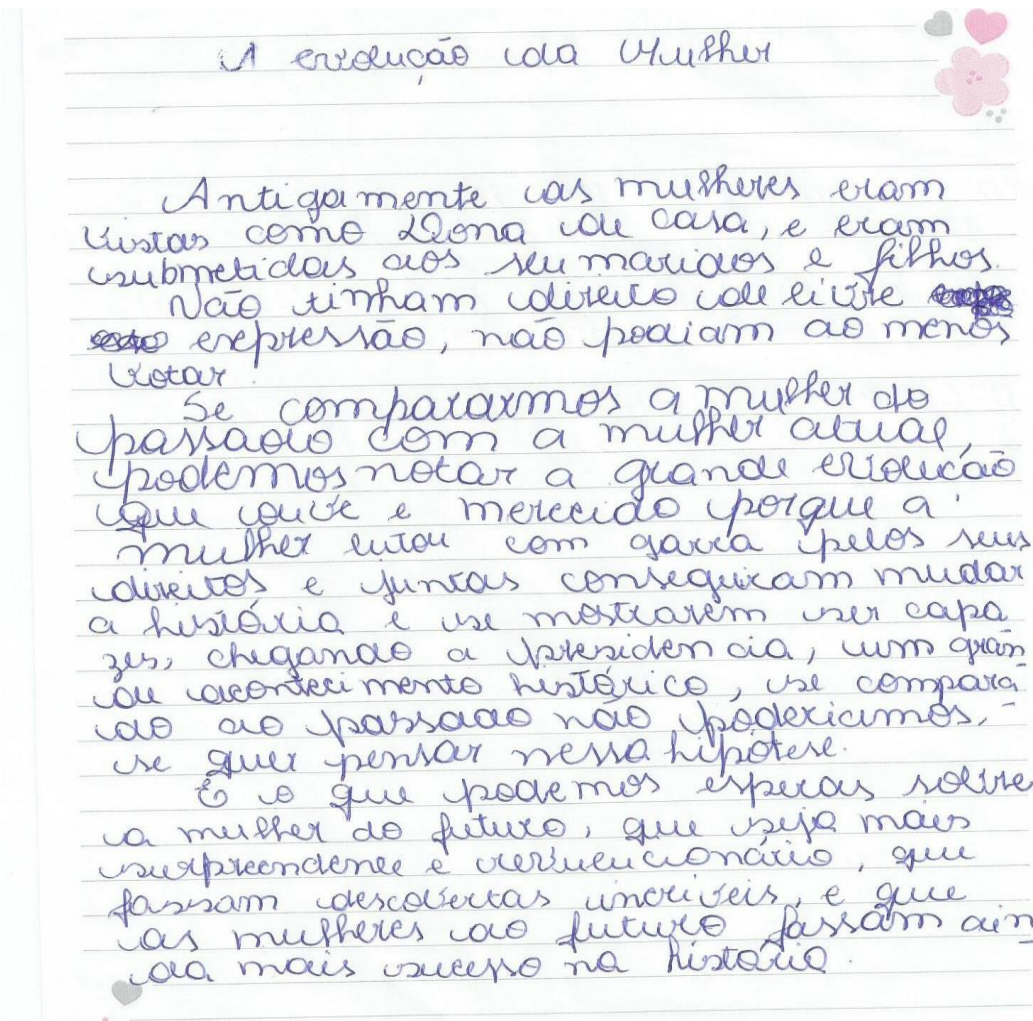 A evolução da Mulher
Antigamente as mulheres eram
vistas como Dona de casa, e eram
submetidas aos seu maridos e filhos.
Não tinham direito de livre
expressão, não podiam ao menos
votar.
Se compararmos a mulher do
passado com a mulher atual,
podemos notar a grande evolução
que ouve e merecido porque a
mulher lutou com garra pelos seus
direitos e juntas conseguiram mudar
a história e se mostrarem ser capa
zes, chegando a presidencia, um gran
de acontecimento histórico, se compara
do ao passado não poderiamos,
se quer pensar nessa hipótese.
E o que podemos esperas sobre
a mulher do futuro, que seja mais
e, que
fassam descobertas incriveis, e que
as mulheres do futuro fassam ain
da mais sucesso na história.